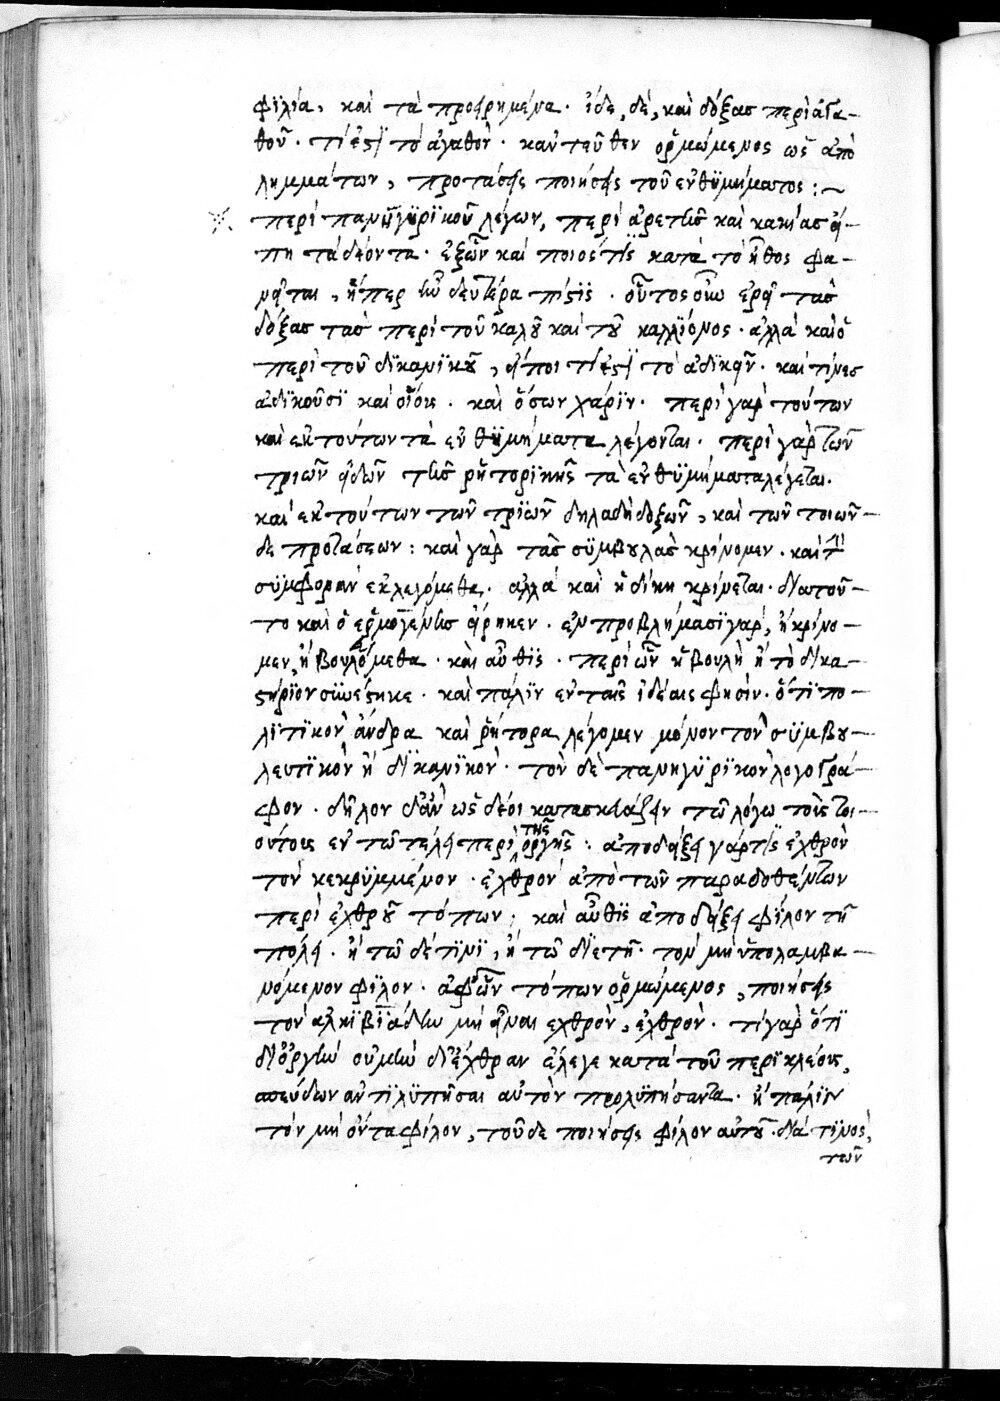 φϊλία, καὶ τὰ προειρημένα. εἶδε, δέ, καὶ δόξας περὶ ἀγα-
θοῦ. τί ἐστὶ τὸ ἀγαθὸν. κἀντεῦθεν ὁρμώμενος ὡς ἀπὸ
λημμάτων, προτάσεις ποιήσεις τοῦ ἐνθϋμήματος :~
περὶ πανηγϋρϊκοῦ λέγων, περὶ ἀρετῆς καὶ κακίας εἴ-
πη τὰ δέοντα. ἐξ ὧν καὶ ποιός τίς κατὰ τὸ ἦθος φα-
νεῖται, ἥπερ ἦν δευτέρα πίστϊς. οὗτος οὖν ἐρεῖ τὰς
δόξας τὰς περὶ τοῦ καλοῦ καὶ τοῦ καλλίονος. ἀλλὰ καὶ ὁ
περὶ τοῦ δϊκανϊκοῦ, εἴποι τί ἐστὶ τὸ ἀδϊκεῖν. καὶ τίνες
ἀδϊκοῦσϊ καὶ οἵοις. καὶ ὅσων χάρϊν. περὶ γὰρ τούτων
καὶ ἐκ τούτων τὰ ἐνθϋμήματα λέγονται. περὶ γὰρ τῶν
τριῶν εἰδῶν τῆς ῥητορϊκῆς τὰ ἐνθϋμήματα λέγεται.
καὶ ἐκ τούτων τῶν τρϊῶν δηλαδὴ δοξῶν, καὶ τῶν τοιῶν-
δε προτάσεων: καὶ γὰρ τὰς σϋμβουλὰς κρίνομεν. καὶ τὴν
σϋμφορὰν ἐκλεγόμεθα. ἀλλὰ καὶ ἡ δίκη κρίνεται. διατοῦ-
το καὶ ὁ ἑρμογένης εἴρηκεν. ἐν προβλήμασϊ γὰρ, ἢ κρίνο-
μεν, ἢ βουλόμεθα. καὶ αὖθϊς. περὶ ὧν ἡ βουλὴ ἢ τὸ δικα-
στήρϊον σϋνέστηκε. καὶ πάλϊν ἐν ταῖς ἰδέαις φησίν. ὅτϊ πο-
λϊτϊκὸν ἄνδρα καὶ ῥήτορα λέγομεν μόνον τὸν σϋμβου-
λευτϊκὸν ἢ δϊκανϊκὸν. τὸν δὲ πανηγϋρϊκὸν λογογρά-
φον. δῆλον δ' ἂν ὡς δέοι κατασκευάζειν τῷ λόγω τοῖς τοι-
ούτοις ἐν τῷ τέλει περὶ τῆς ὀργῆς. ἀποδείξει γάρ τίς ἐχθρὸν
τὸν κεκρϋμμένον. ἐχθρὸν ἀπὸ τῶν παραδοθέντων
περὶ ἐχθροῦ τόπων; καὶ αὖθϊς ἀποδείξει φϊλον τῆ
πόλει. ἢ τῷ δέ τϊνϊ, ἢ τῷ δϊέτη. τὸν μὴ ὑπολαμβα-
νόμενον φϊλον. ἀφ' ὧν τόπων ὁρμώμενος, ποιήσεις
τὸν ἀλκϊβϊάδην μὴ εἶναι ἐχθρὸν, ἐχθρὸν. τί γὰρ ὅτϊ
δι' ὀργὴν οὐ μὴν δι' ἔχθραν ἔλεγε κατὰ τοῦ περϊκλέους,
σπεύδων ἀντϊλϋπῆσαι αὐτὸν προλϋπήσαντα. ἢ πάλϊν
τὸν μὴ ὄντα φίλον, τοῦδε ποιήσεις φίλον αὐτοῦ. διὰ τϊνος,
τῶν